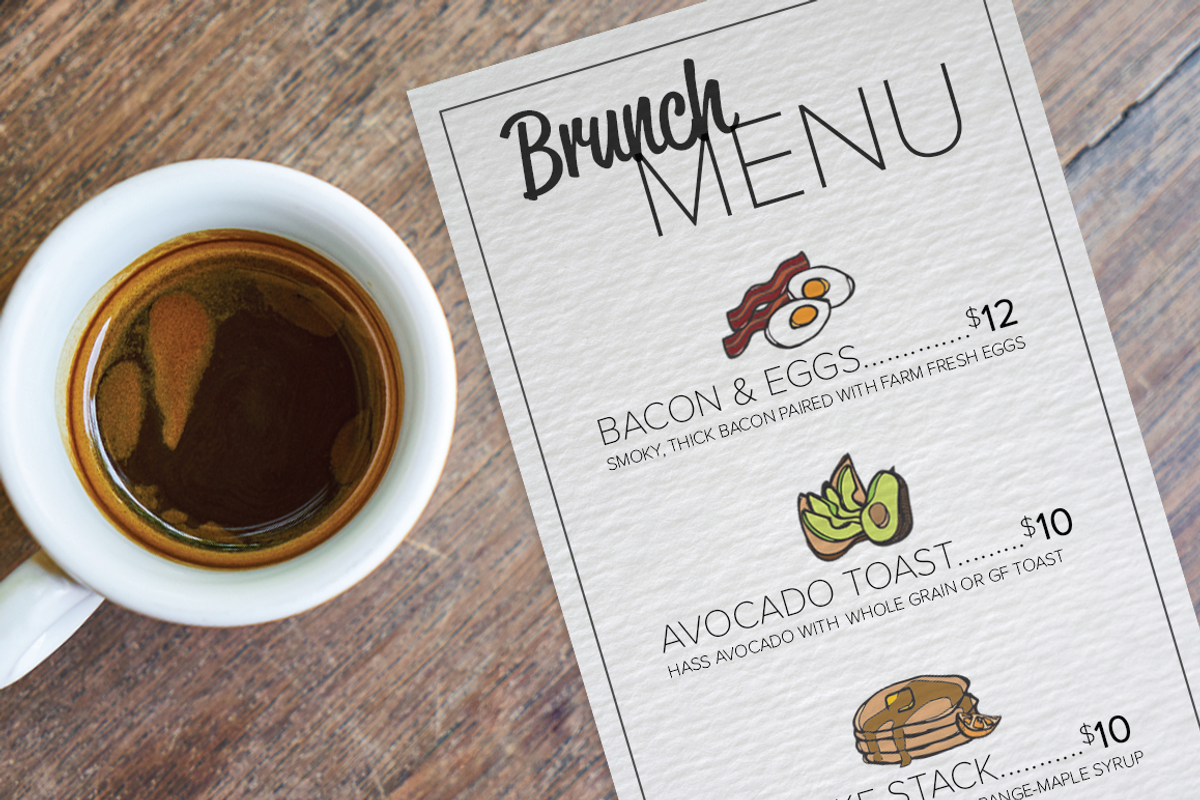 Brunch
MENU
BACON & EGGS..............$12
SMOKY, THICK BACON PAIRED WITH FARM FRESH EGGS
AVOCADO TOAST.........$10
HASS AVOCADO WITH WHOLE GRAIN OR GF TOAST
STACK...........$10
SYRUP